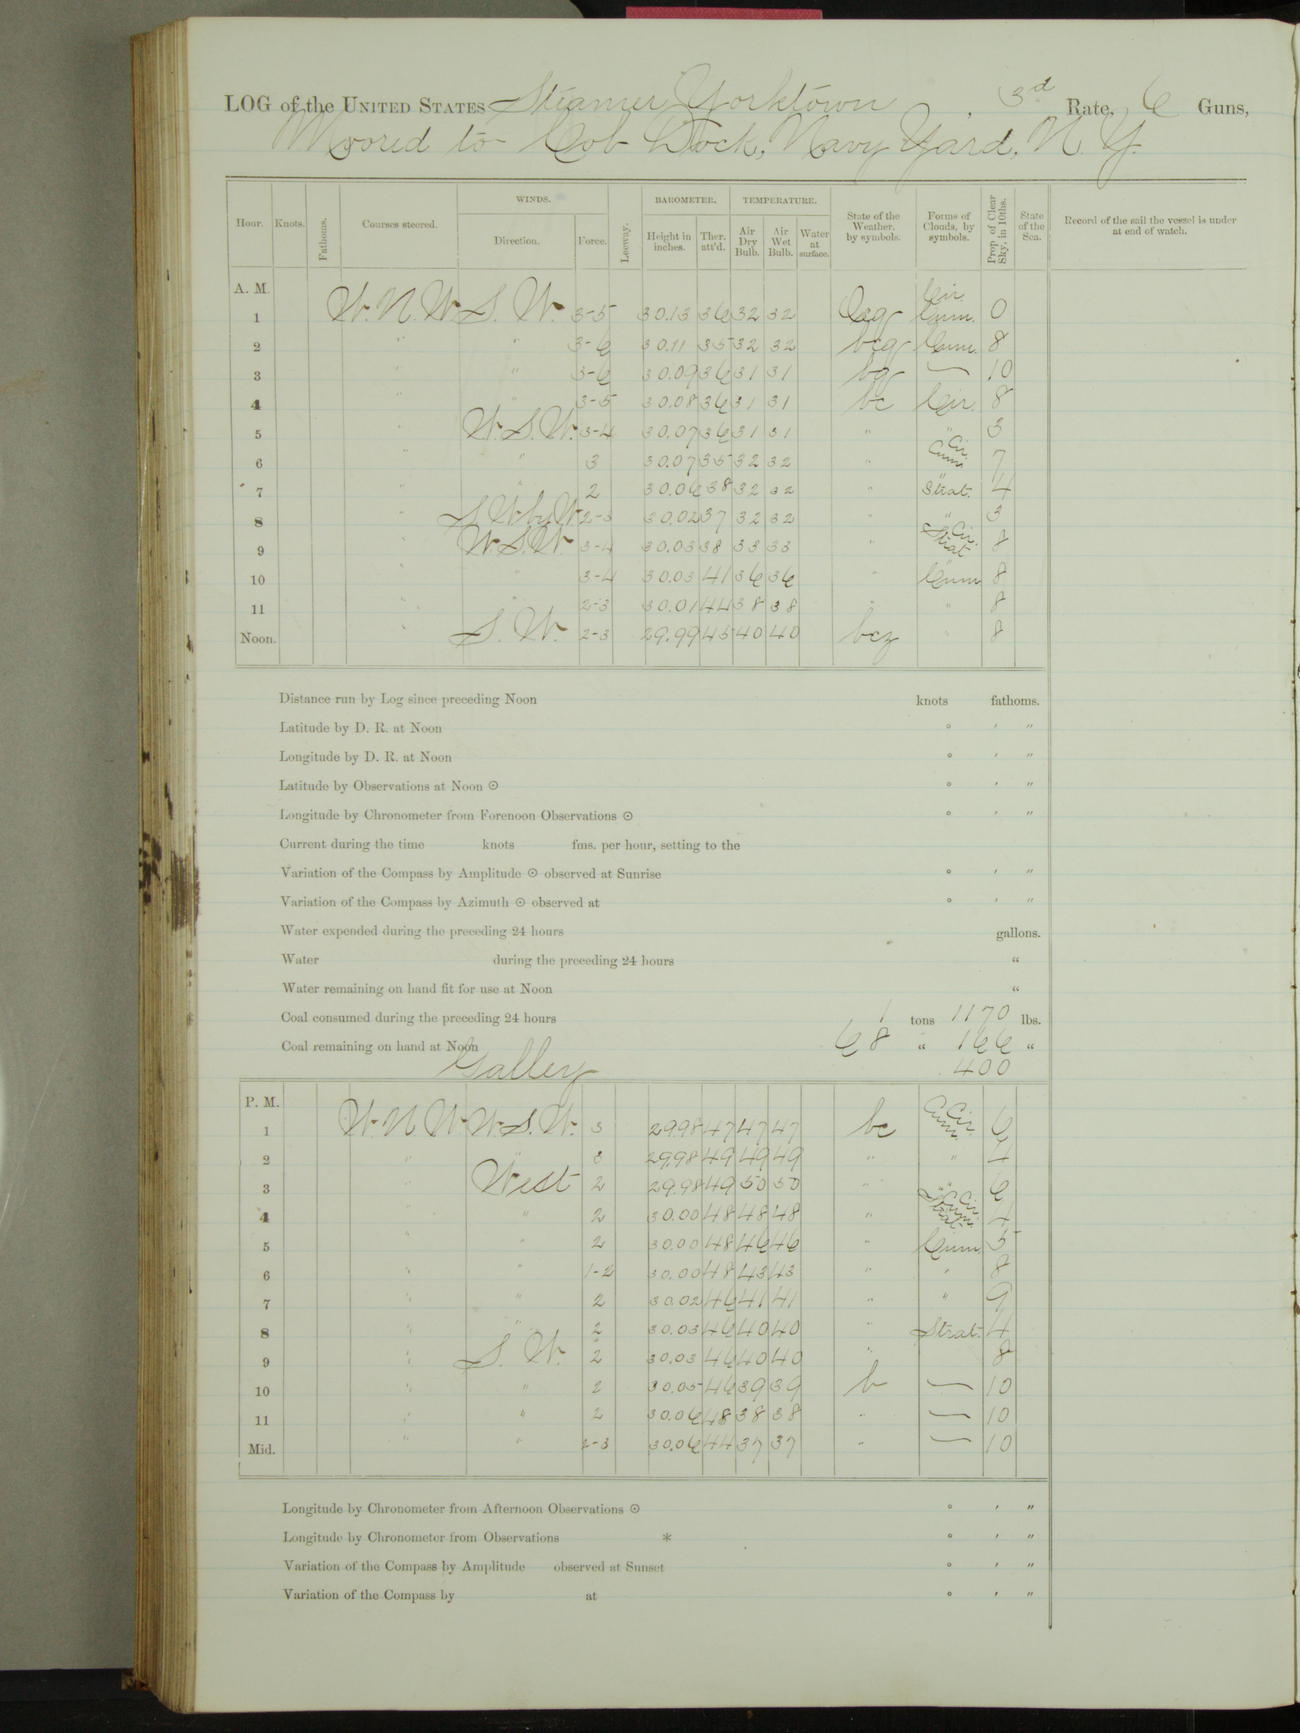 LOG of the UNITED STATES Steamer Yorktown, 3d Rate, 6 Guns,
Moored to Cob Dock, Navy Yard, N. Y.
Hour. Knots. Fathoms. Courses steered. WINDS. Direction. Force. Leeway. BAROMETER. Height in inches. Ther. att'd. TEMPERATURE. Air Dry Bulb. Air Wet Bulb. Water at surface. State of the Weather, by symbols. Forms of Clouds, by symbols. Prop. of Clear Sky, in 10ths. State of the Sea. Record of the sail the vessel is under at end of watch.
A. M.
1 W. N. W. S. W. 3-5 30.13 36 32 32 Cir. Cum. 0
2 " " 3-6 30.11 35 32 32 bcq Cum. 8
3 " " 3-6 30.09 36 31 31 bq — 10
4 " " 3-5 30.08 36 31 31 bc Cir. 8
5 " W. S. W. 3-4 30.07 36 31 31 " " 3
6 " " 3 30.07 35 32 32 " Cir. Cum. 7
7 " " 2 30.06 38 32 32 " " Strat. 4
8 " S. W. by W. 2-3 30.02 37 32 32 " " 3
9 " W. S. W. 3-4 30.03 38 33 33 " Cir. Strat 8
10 " " 3-4 30.03 41 36 36 " Cum 8
11 " " 2-3 30.01 44 38 38 " " 8
Noon. " S. W. 2-3 29.99 45 40 40 bcz " 8
Distance run by Log since preceding Noon knots fathoms.
Latitude by D. R. at Noon ° ′ ″
Longitude by D. R. at Noon ° ′ ″
Latitude by Observations at Noon ☉ ° ′ ″
Longitude by Chronometer from Forenoon Observations ☉ ° ′ ″
Current during the time knots fms. per hour, setting to the
Variation of the Compass by Amplitude ☉ observed at Sunrise ° ′ ″
Variation of the Compass by Azimuth ☉ observed at ° ′ ″
Water expended during the preceding 24 hours gallons.
Water during the preceding 24 hours "
Water remaining on hand fit for use at Noon "
Coal consumed during the preceding 24 hours 1 tons 1170 lbs.
Coal remaining on hand at Noon 68 " 166 "
Galley 400
P. M.
1 W. N. W. W. S. W. 3 29.98 47 47 47 bc Cir. Cum. 6
2 " " 3 29.98 49 49 49 " " 4
3 " West 2 29.98 49 50 50 " " 6
4 " " 2 30.00 48 48 48 " Cir. Cum. Strat. 4
5 " " 2 30.00 48 46 46 " Cum. 5
6 " " 1-2 30.00 48 43 43 " " 8
7 " " 2 30.02 46 41 41 " " 9
8 " " 2 30.03 46 40 40 " Strat. 4
9 " S. W. 2 30.03 46 40 40 " 8
10 " " 2 30.05 46 39 39 b — 10
11 " " 2 30.06 48 38 38 " — 10
Mid. " " 2-3 30.06 44 37 37 " — 10
Longitude by Chronometer from Afternoon Observations ☉ ° ′ ″
Longitude by Chronometer from Observations * ° ′ ″
Variation of the Compass by Amplitude observed at Sunset ° ′ ″
Variation of the Compass by at ° ′ ″